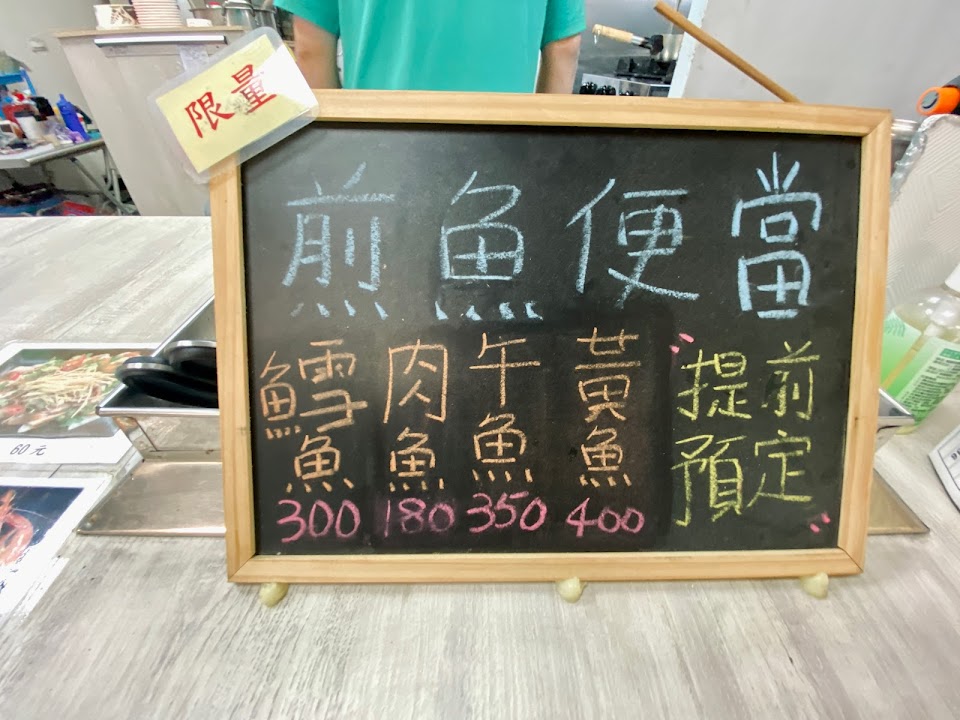 限量
煎魚便當
鱈魚 肉魚 午魚 黃魚
300 180 350 400
提前
預定
60元